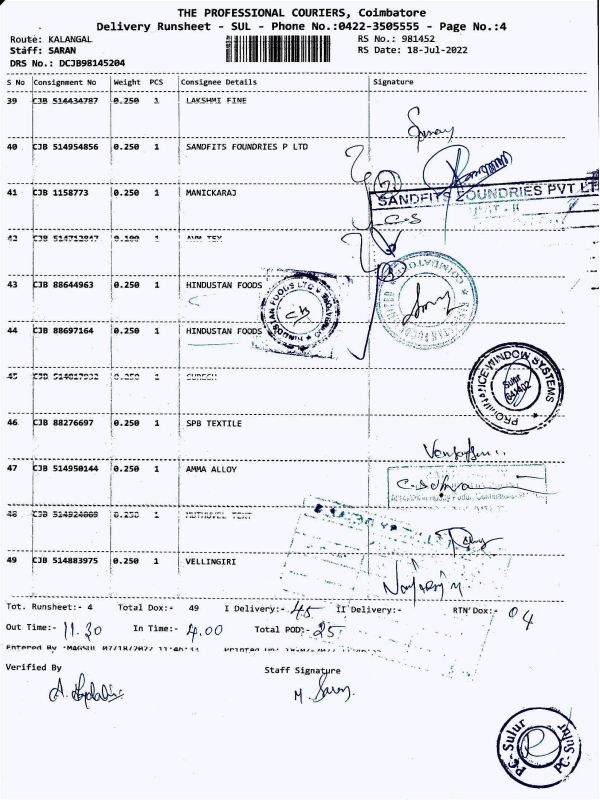 THE PROFESSIONAL COURIERS, Coimbatore
Delivery Runsheet - SUL - Phone No.:0422-3505555 - Page No.:4
Route: KALANGAL RS No.: 981452
Staff: SARAN RS Date: 18-Jul-2022
DRS No.: DCJB98145204
S No Consignment No Weight PCS Consignee Details Signature
39 CJB 514434787 0.250 1 LAKSHMI FINE
40 CJB 514954856 0.250 1 SANDFITS FOUNDRIES P LTD
41 CJB 1158773 0.250 1 MANICKARAJ
SANDFITS FOUNDRIES PVT LT
C-S
42 CJB
43 CJB 88644963 0.250 1 HINDUSTAN FOODS
HINDUSTAN FOODS LTD
44 CJB 88697164 0.250 1 HINDUSTAN FOODS
45 CJB 0.250 1 SURESH
WINDOW SYSTEMS
Sulur
641402
46 CJB 88276697 0.250 1 SPB TEXTILE
47 CJB 514950144 0.250 1 AMMA ALLOY
48 CJB 0.250 1
49 CJB 514883975 0.250 1 VELLINGIRI
Tot. Runsheet:- 4 Total Dox:- 49 I Delivery:- 45 II Delivery:- RTN Dox:- 04
Out Time:- 11.30 In Time:- 4.00 Total POD:- 25
Verified By Staff Signature
PC-Sulur
PC-Sulur